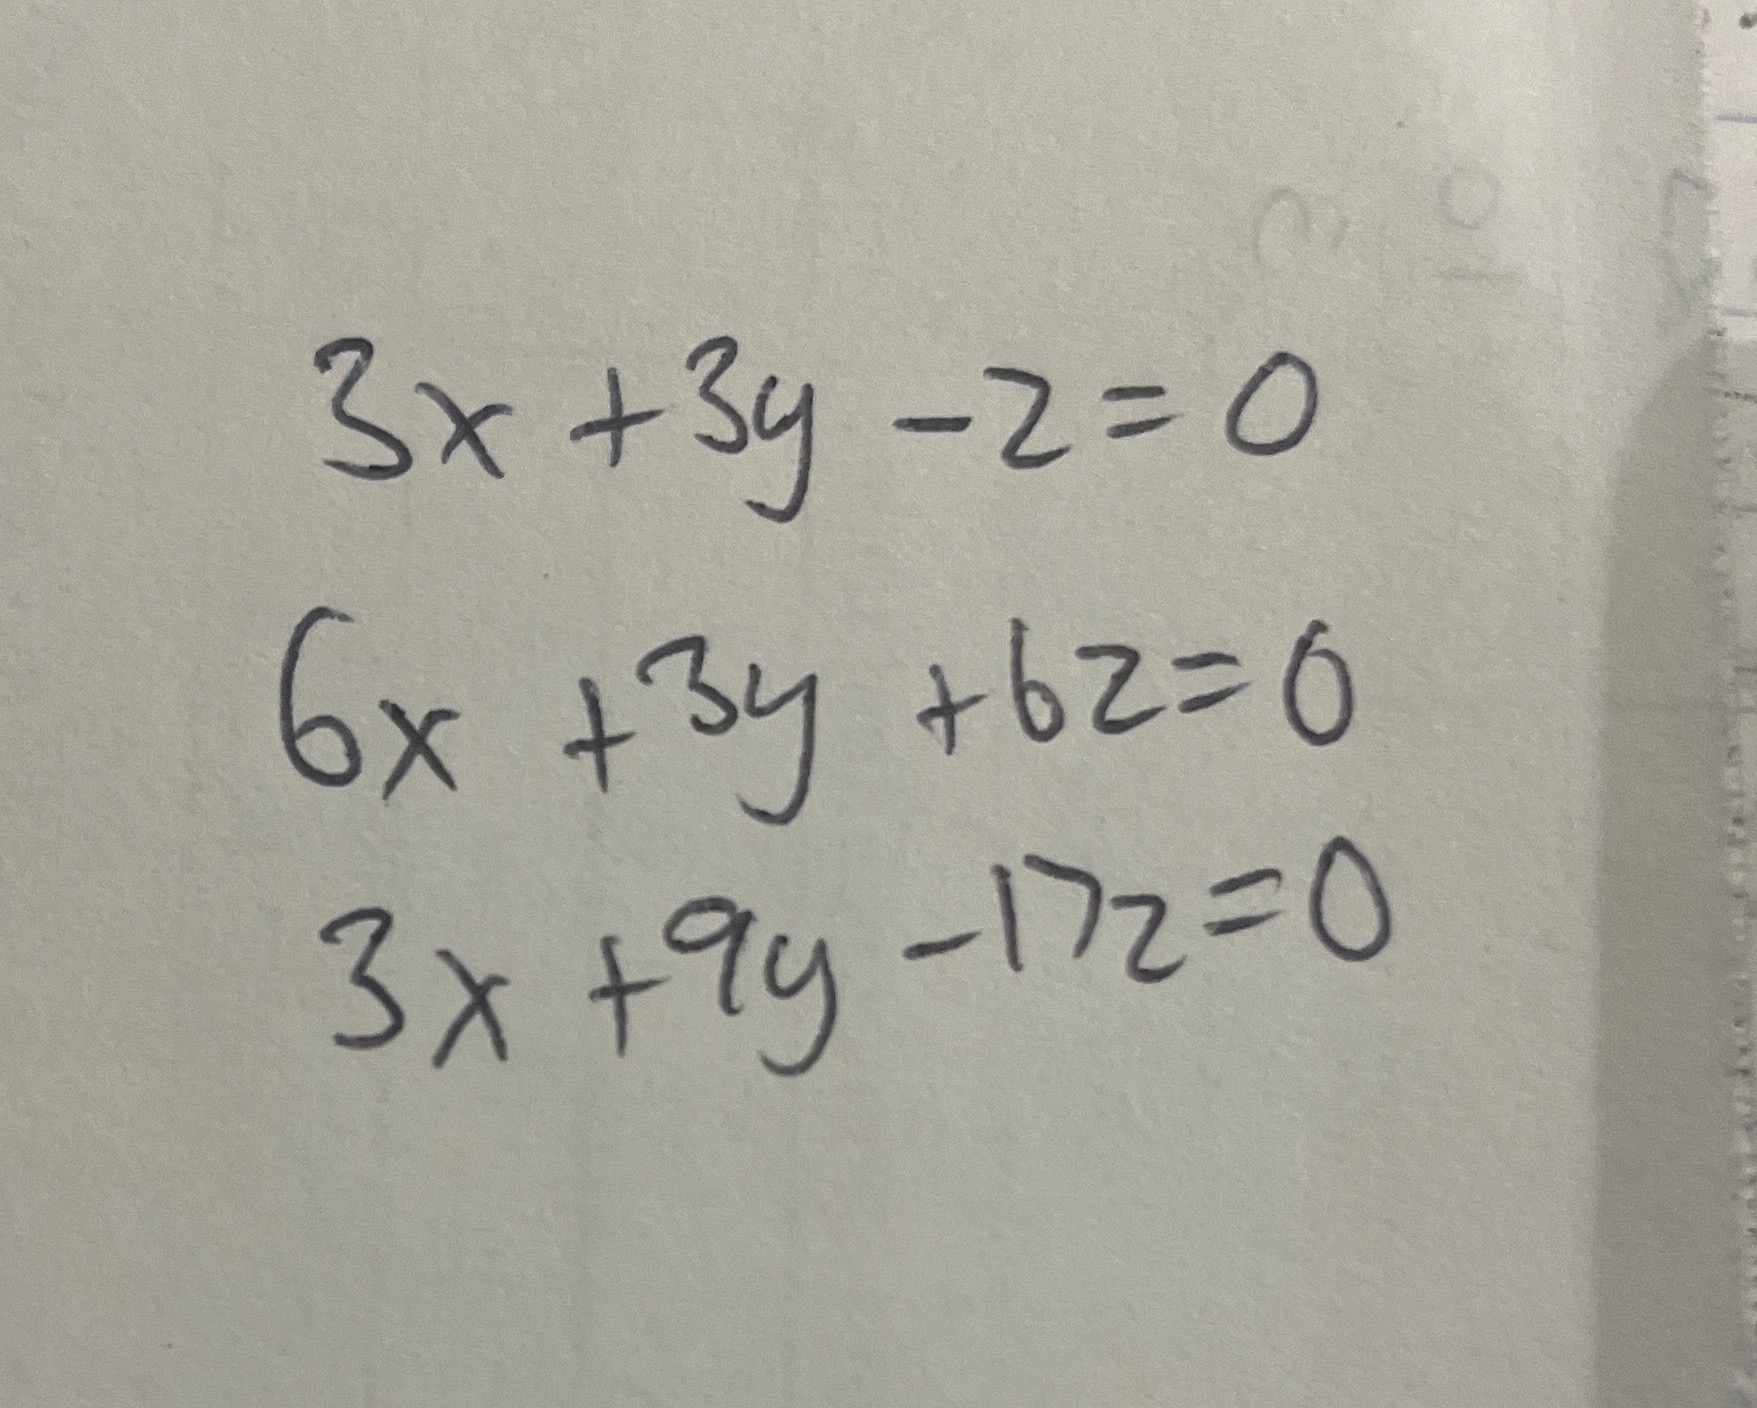 3x + 3y - z = 0
6x + 3y + 6z = 0
3x + 9y - 17z = 0